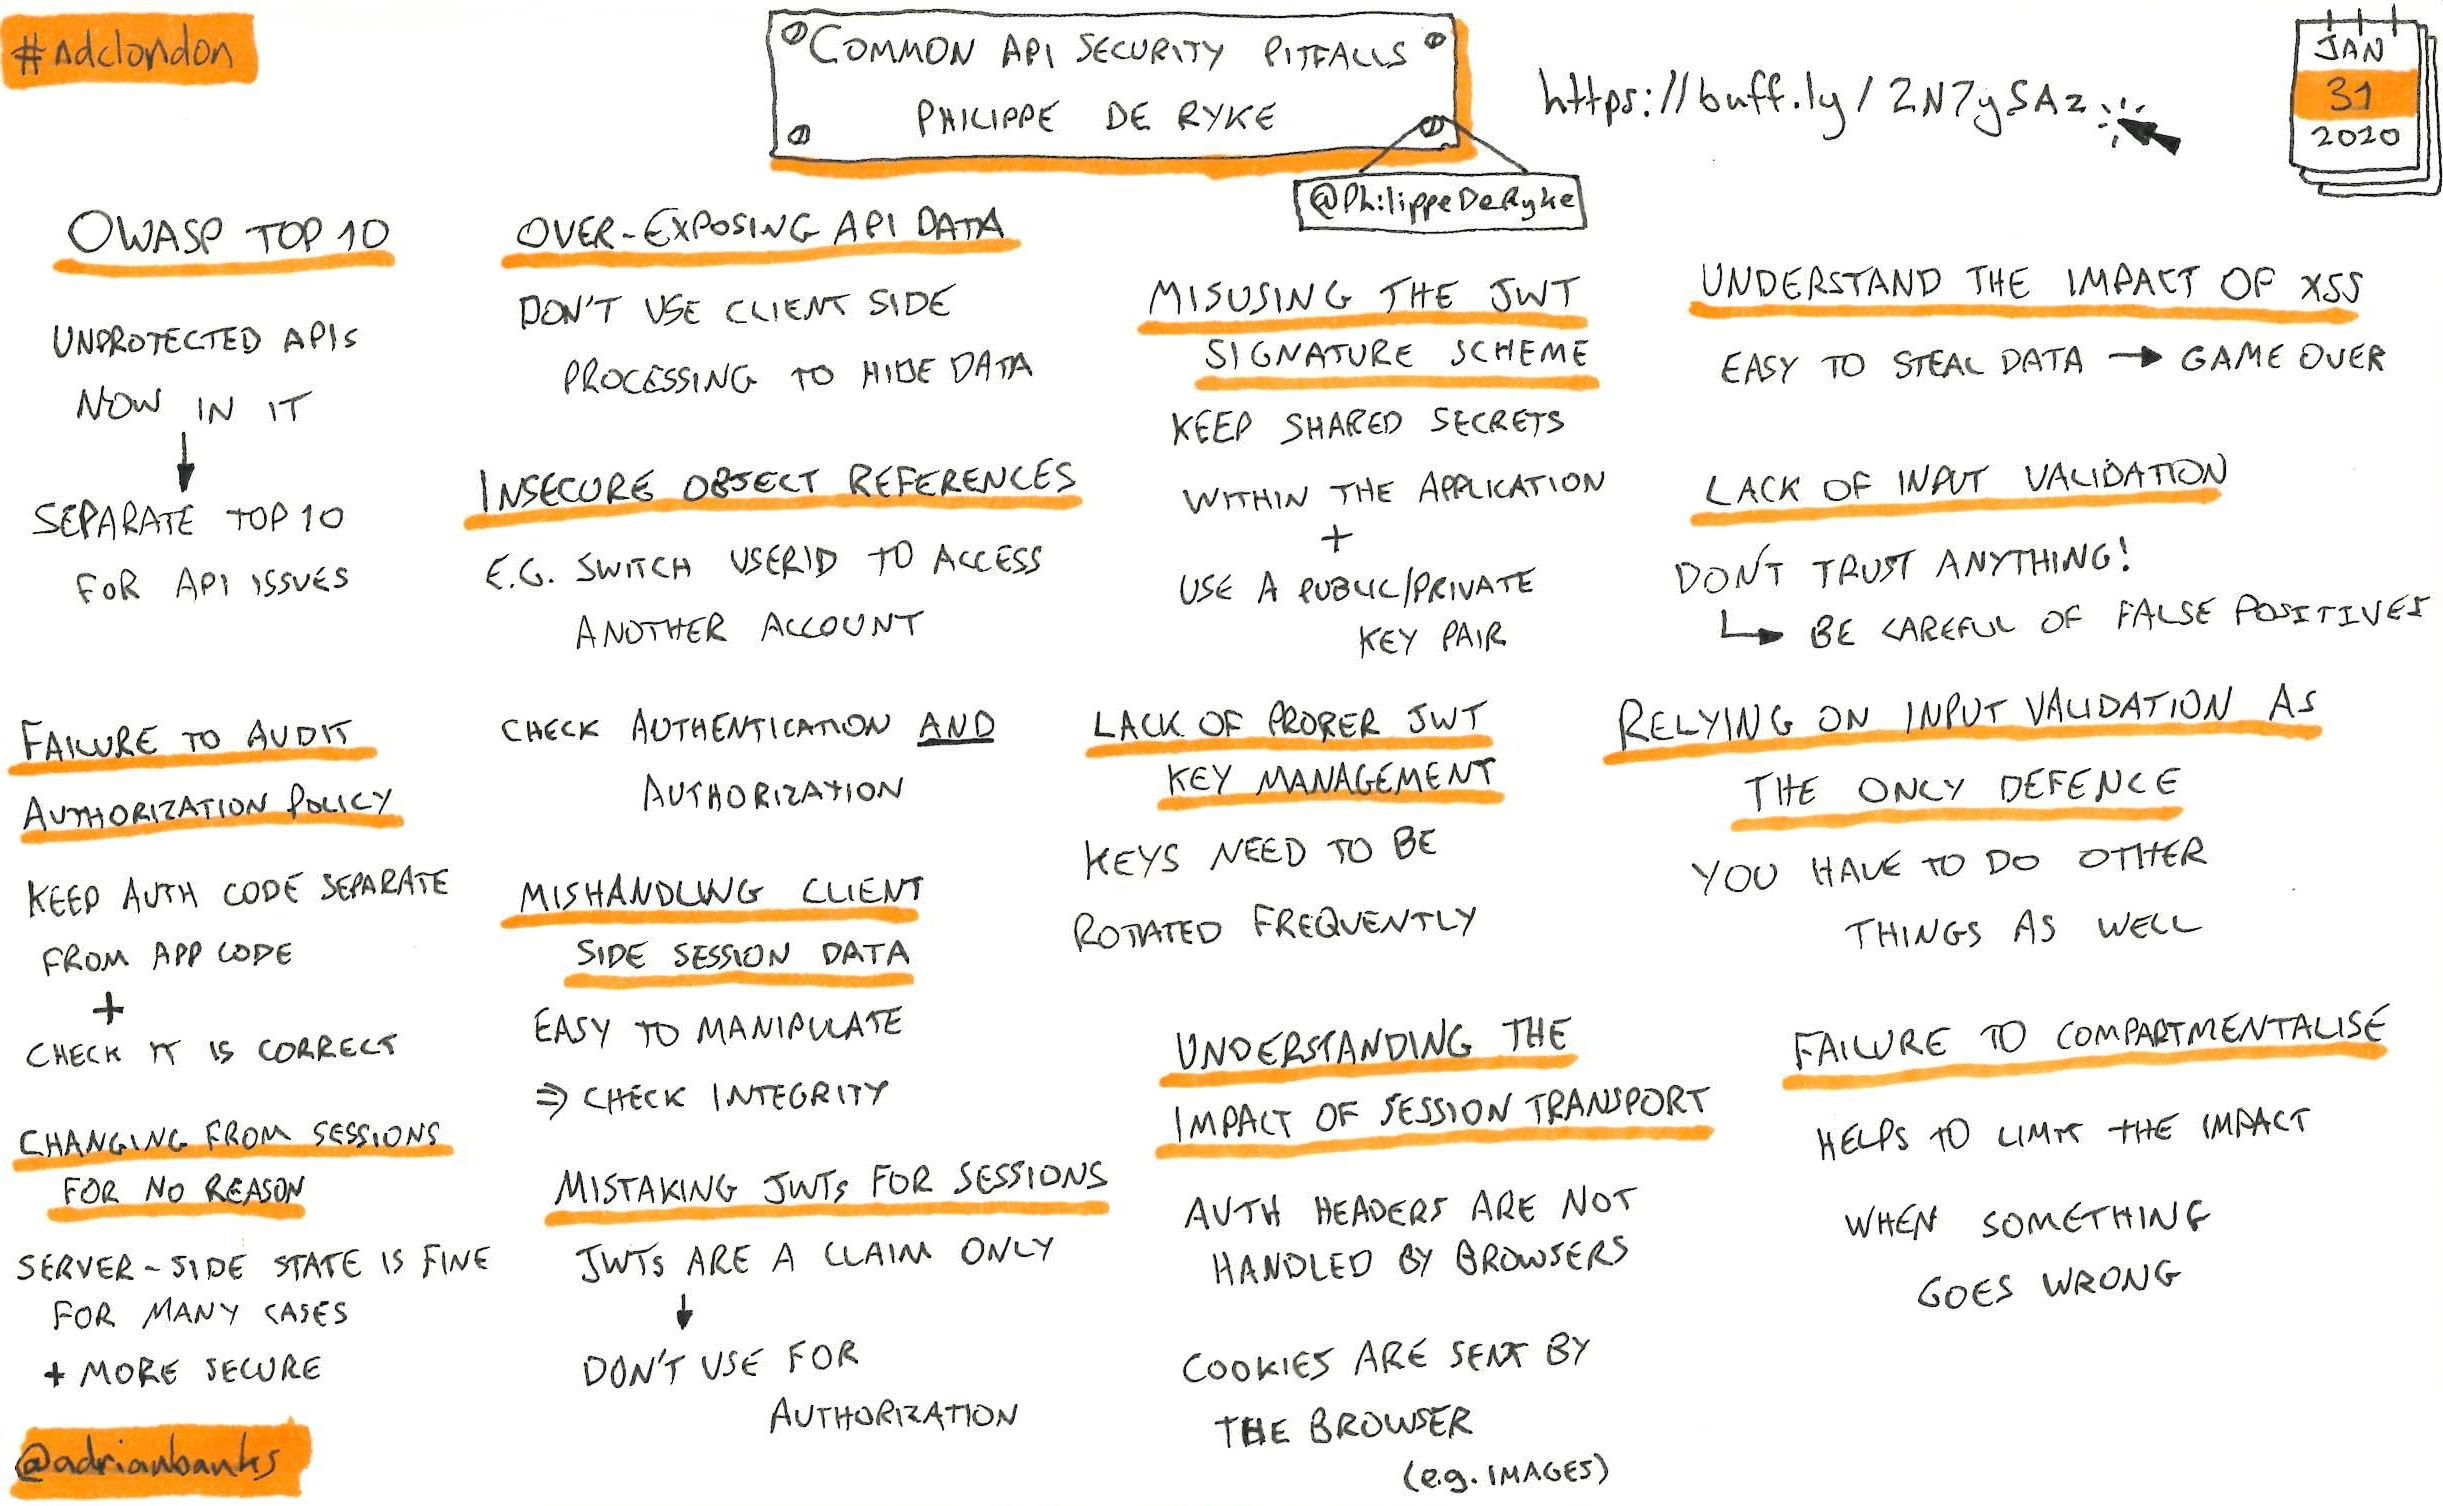 #ndclondon
COMMON API SECURITY PITFALLS
PHILIPPE DE RYKE
@PhilippeDeRyke
https://buff.ly/2N7ySAz
JAN
31
2020
OWASP TOP 10
UNPROTECTED APIs
NOW IN IT
SEPARATE TOP 10
FOR API ISSUES
FAILURE TO AUDIT
AUTHORIZATION POLICY
KEEP AUTH CODE SEPARATE
FROM APP CODE
+
CHECK IT IS CORRECT
CHANGING FROM SESSIONS
FOR NO REASON
SERVER-SIDE STATE IS FINE
FOR MANY CASES
+ MORE SECURE
@adrianbanks
OVER-EXPOSING API DATA
DON'T USE CLIENT SIDE
PROCESSING TO HIDE DATA
INSECURE OBJECT REFERENCES
E.G. SWITCH USERID TO ACCESS
ANOTHER ACCOUNT
CHECK AUTHENTICATION AND
AUTHORIZATION
MISHANDLING CLIENT
SIDE SESSION DATA
EASY TO MANIPULATE
⇒ CHECK INTEGRITY
MISTAKING JWTs FOR SESSIONS
JWTs ARE A CLAIM ONLY
DON'T USE FOR
AUTHORIZATION
MISUSING THE JWT
SIGNATURE SCHEME
KEEP SHARED SECRETS
WITHIN THE APPLICATION
+
USE A PUBLIC/PRIVATE
KEY PAIR
LACK OF PROPER JWT
KEY MANAGEMENT
KEYS NEED TO BE
ROTATED FREQUENTLY
UNDERSTANDING THE
IMPACT OF SESSION TRANSPORT
AUTH HEADERS ARE NOT
HANDLED BY BROWSERS
COOKIES ARE SENT BY
THE BROWSER
(e.g. IMAGES)
UNDERSTAND THE IMPACT OF XSS
EASY TO STEAL DATA → GAME OVER
LACK OF INPUT VALIDATION
DON'T TRUST ANYTHING!
BE CAREFUL OF FALSE POSITIVES
RELYING ON INPUT VALIDATION AS
THE ONLY DEFENCE
YOU HAVE TO DO OTHER
THINGS AS WELL
FAILURE TO COMPARTMENTALISE
HELPS TO LIMIT THE IMPACT
WHEN SOMETHING
GOES WRONG